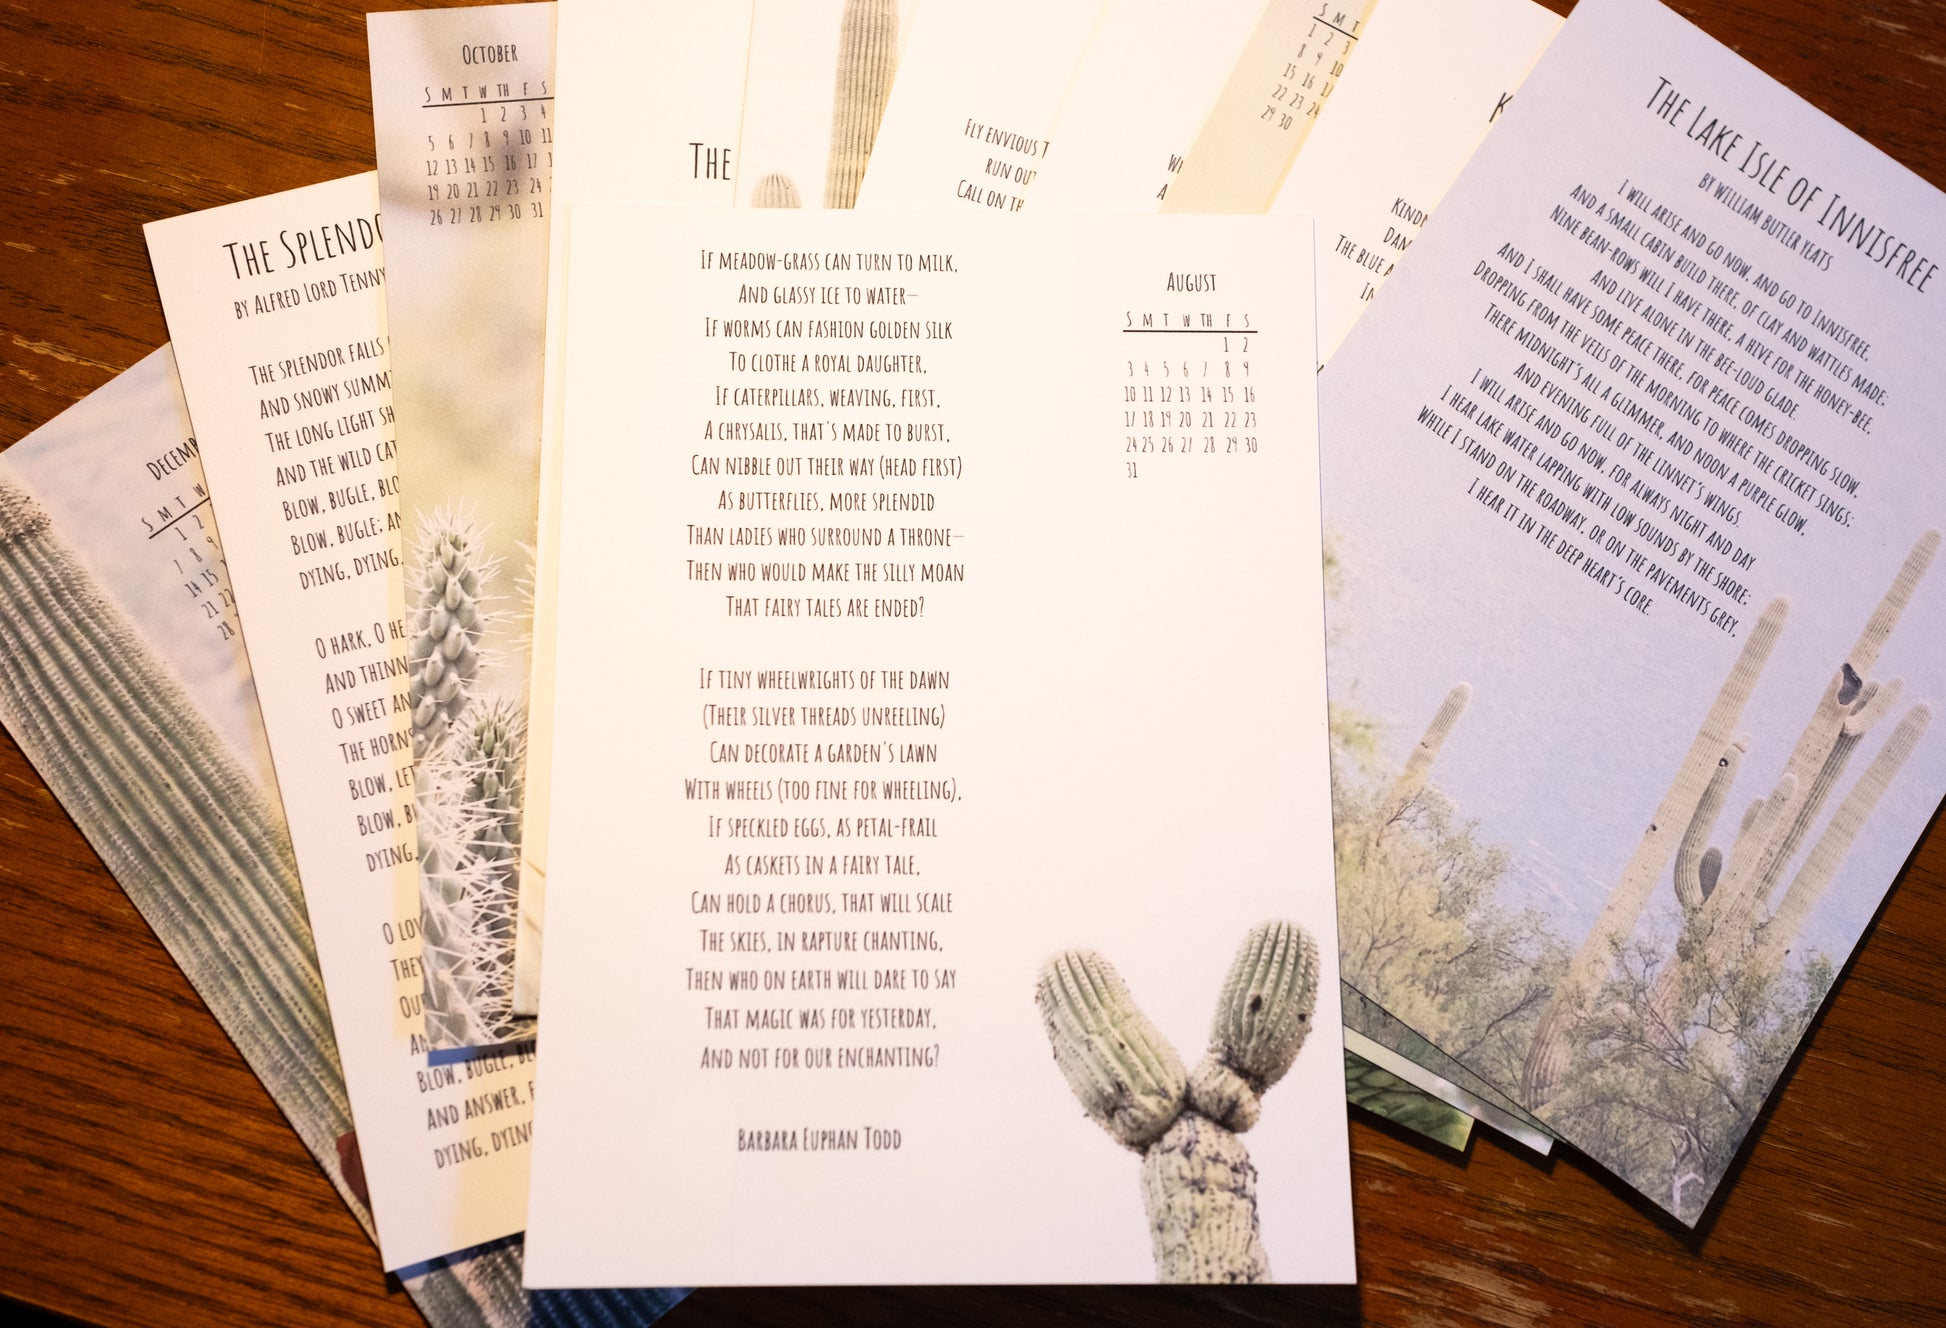 December
S M T W
1 2
7 8 9
14 15
21 22
28
The Splendo
by Alfred Lord Tenny
The splendor falls
And snowy summ
The long light sh
And the wild cat
Blow, bugle, blo
Blow, bugle; an
dying, dying,
O hark, O he
And thinn
O sweet an
The horns
Blow, let
Blow, bu
dying,
O lov
They
Our
An
Blow, bugle, blo
And answer, e
dying, dying
October
S M T W TH F S
1 2 3 4
5 6 7 8 9 10 11
12 13 14 15 16 17 1
19 20 21 22 23 24 2
26 27 28 29 30 31
The
If meadow-grass can turn to milk,
And glassy ice to water—
If worms can fashion golden silk
To clothe a royal daughter,
If caterpillars, weaving, first,
A chrysalis, that's made to burst,
Can nibble out their way (head first)
As butterflies, more splendid
Than ladies who surround a throne—
Then who would make the silly moan
That fairy tales are ended?
If tiny wheelwrights of the dawn
(Their silver threads unreeling)
Can decorate a garden's lawn
With wheels (too fine for wheeling),
If speckled eggs, as petal-frail
As caskets in a fairy tale,
Can hold a chorus, that will scale
The skies, in rapture chanting,
Then who on earth will dare to say
That magic was for yesterday,
And not for our enchanting?
Barbara Euphan Todd
August
S M T W TH F S
1 2
3 4 5 6 7 8 9
10 11 12 13 14 15 16
17 18 19 20 21 22 23
24 25 26 27 28 29 30
31
Fly envious T
run out
Call on th
S M T
1 2 3
8 9 10
15 16 17
22 23 24
29 30
K
Kindn
Dan
The blue a
In
The Lake Isle of Innisfree
by William Butler Yeats
I will arise and go now, and go to Innisfree,
And a small cabin build there, of clay and wattles made;
Nine bean-rows will I have there, a hive for the honey-bee,
And live alone in the bee-loud glade.
And I shall have some peace there, for peace comes dropping slow,
Dropping from the veils of the morning to where the cricket sings;
There midnight's all a glimmer, and noon a purple glow,
And evening full of the linnet's wings.
I will arise and go now, for always night and day
I hear lake water lapping with low sounds by the shore;
While I stand on the roadway, or on the pavements grey,
I hear it in the deep heart's core.